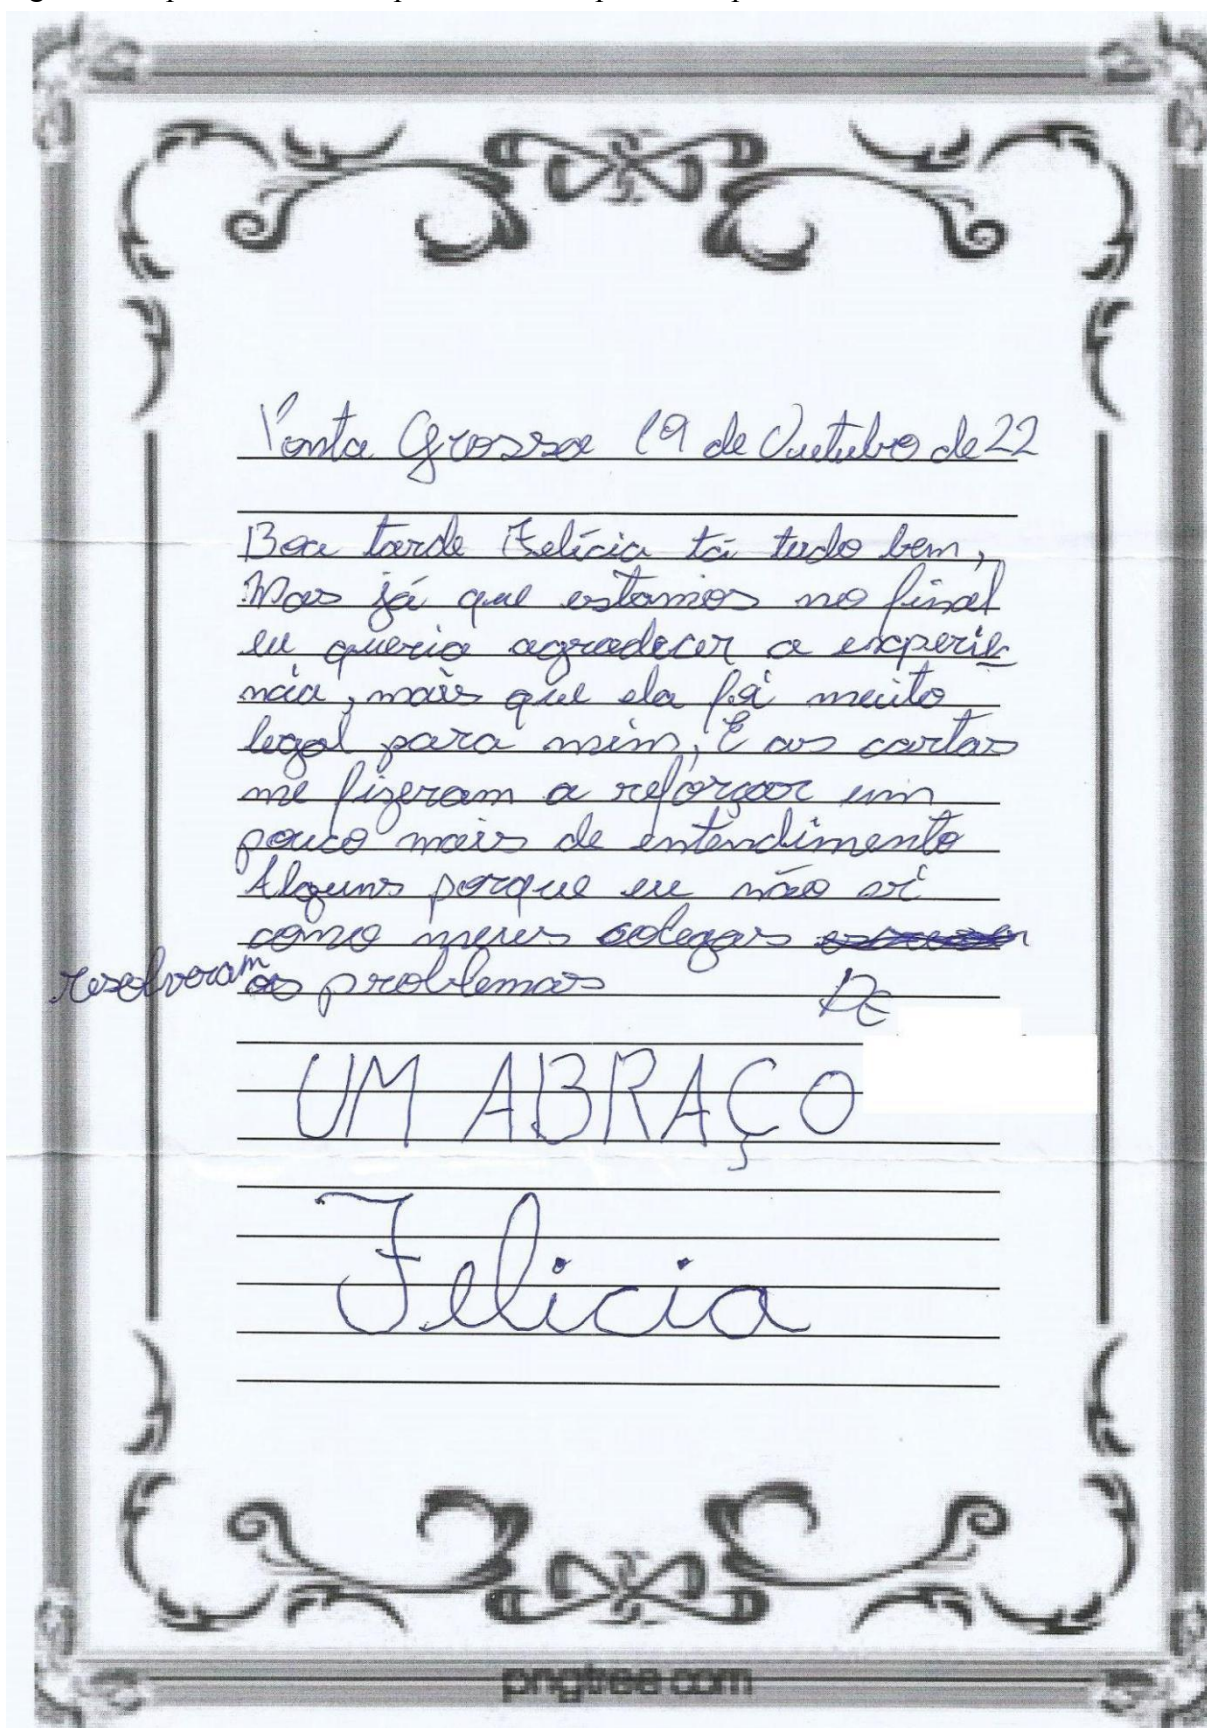 Ponta Grossa 19 de Outubro de 22
Boa tarde Felícia tá tudo bem,
Mas já que estamos no final
eu queria agradecer a experiê
ncia, mais que ela foi muito
legal para mim, E as cartas
me fizeram a reforçar um
pouco mais de entendimento
Alguns porque eu não vi
como meus colegas
resolveram os problemas
DE
UM ABRAÇO
Felicia
pngtree.com